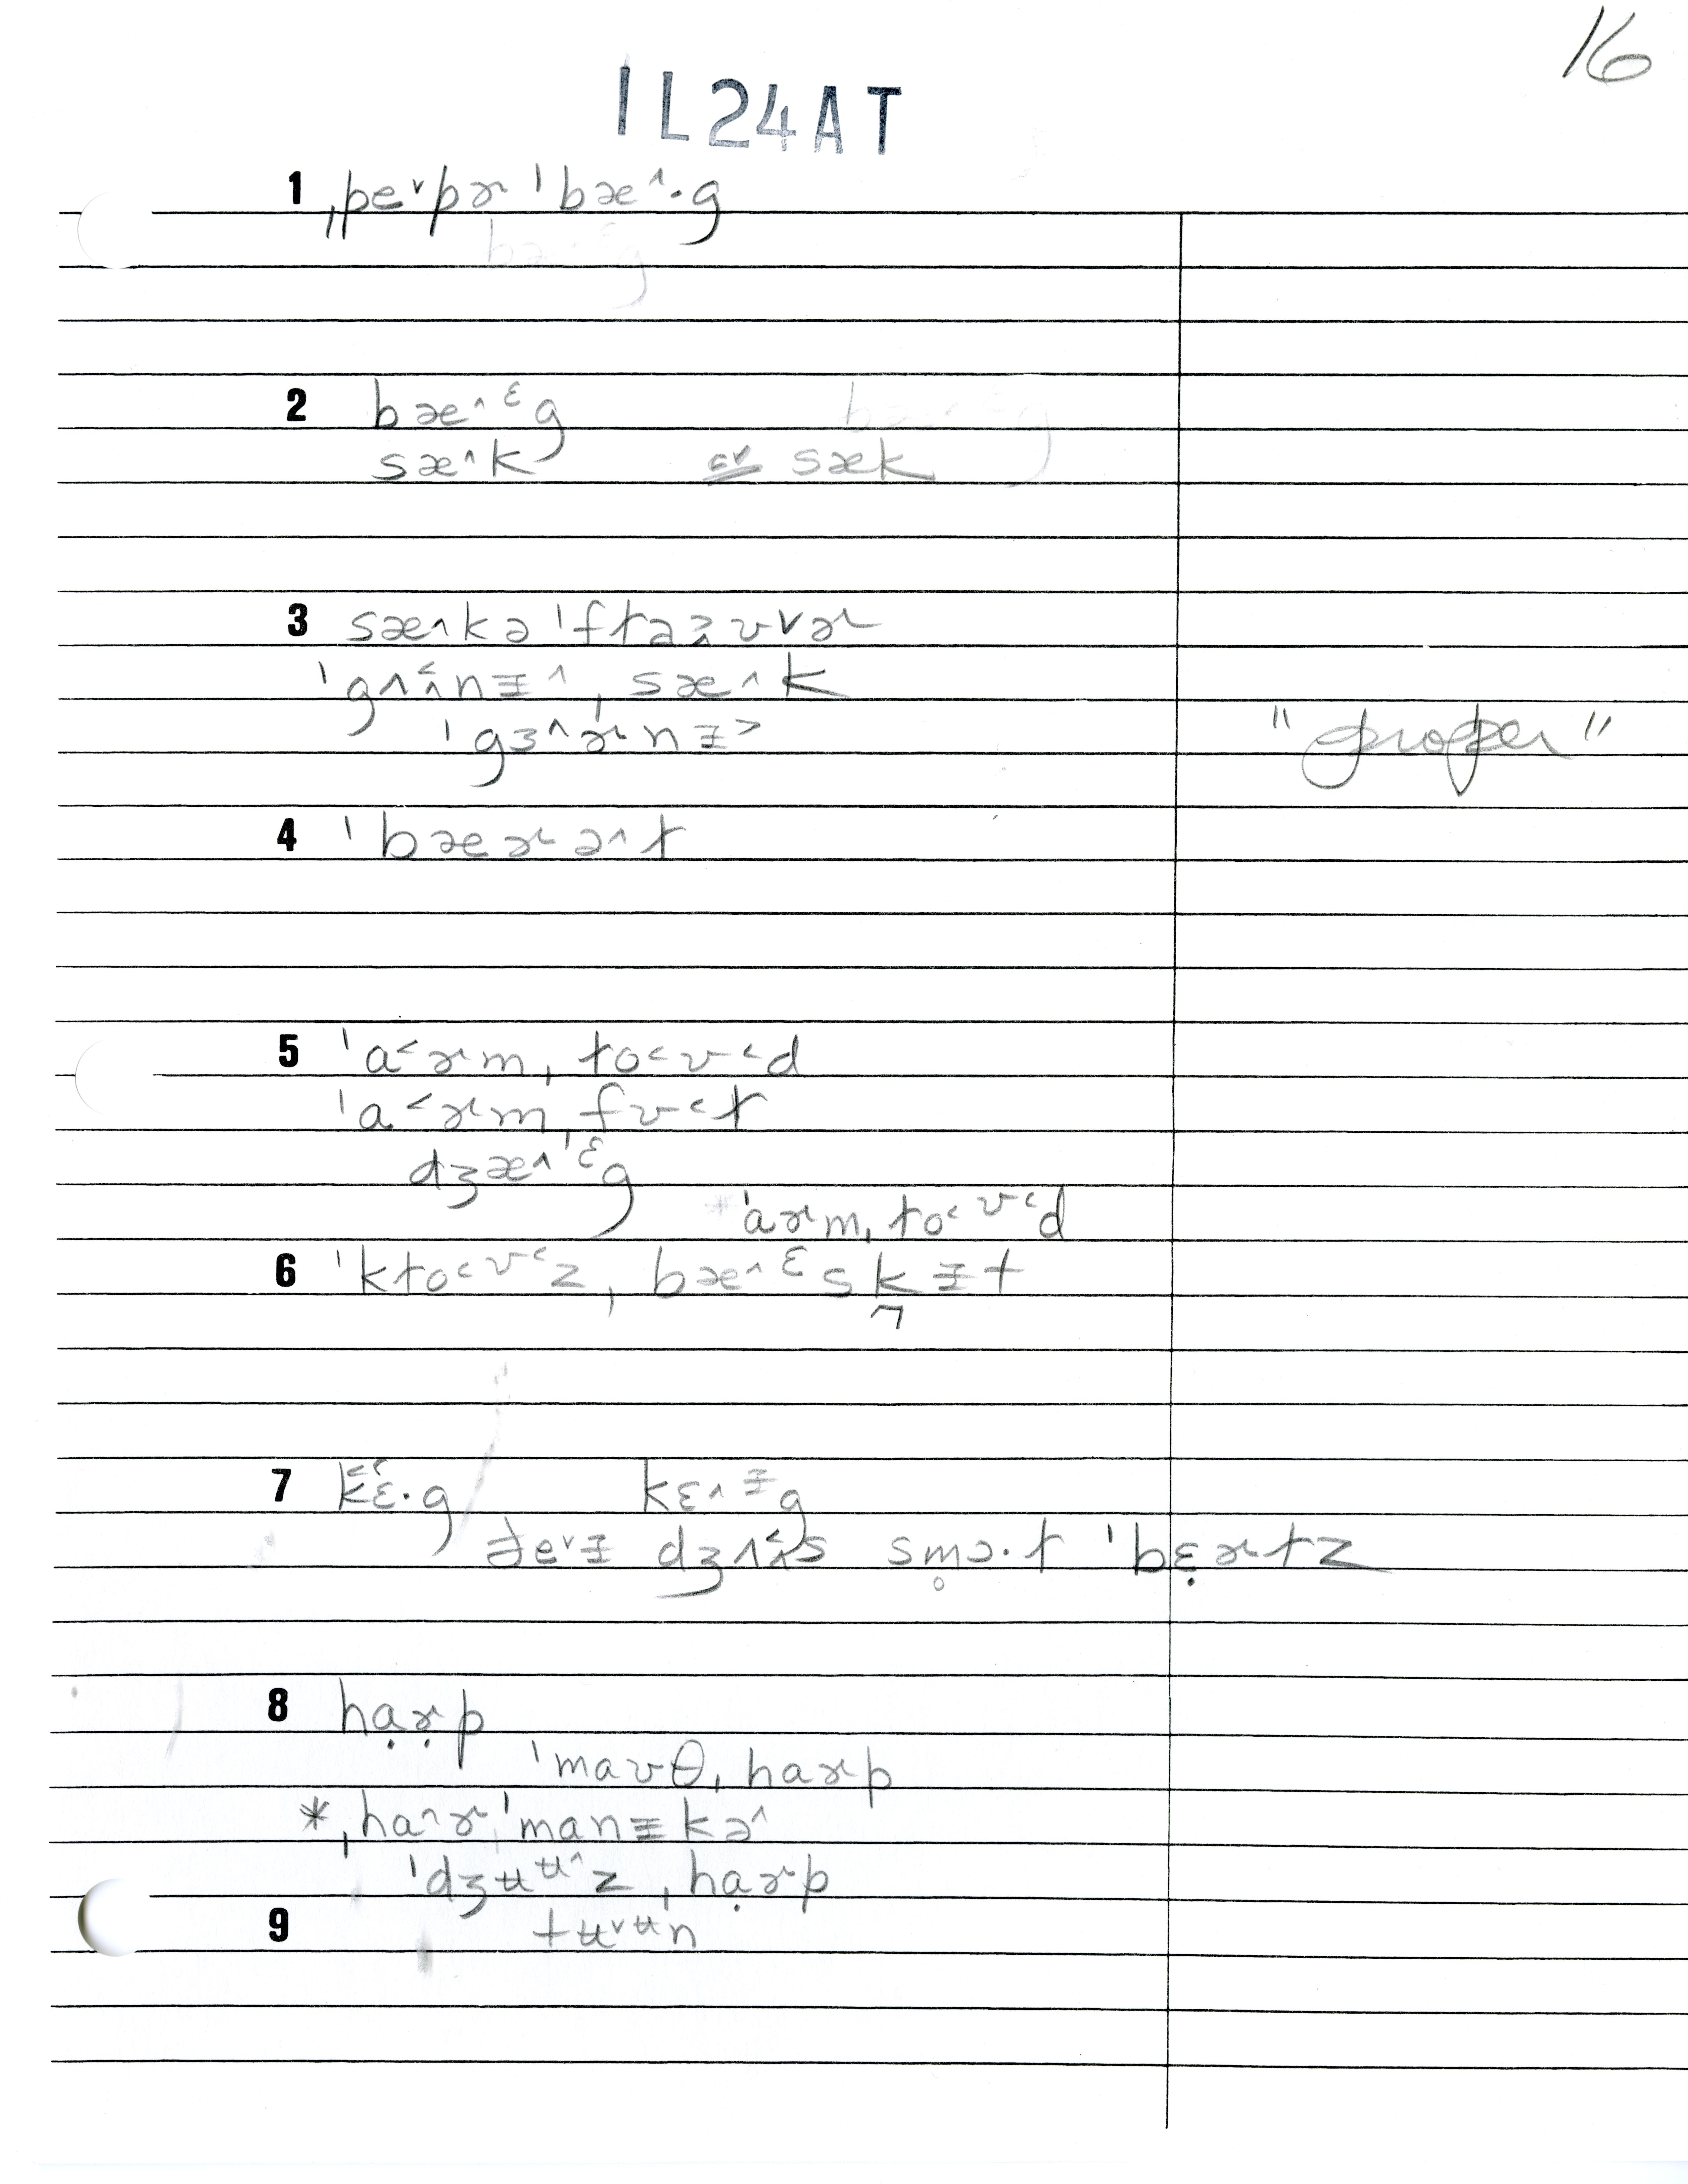 16
1L24AT
1 ˌpe˅pɚ ˈbæ˄·g
2 bæ˄ᵋg
sæ˄k or sæk
3 sæ˄kə ˈfɫaʊvɚ
ˈgʌ˂˄nɪ˄ˌsæ˄k
ˈgɜ˄ɚnɪ˃ "proper"
4 ˈbæɚə˄ɫ
5 ˈa˂ɚmˌɫo˂ʊ˂d
ˈa˂ɚmˌfʊ˂ɫ
dʒæ˄ᵋg
ˈaɚmˌɫo˂ʊ˂d
6 ˈkɫo˂ʊ˂zˌbæ˄ᵋskɪt
7 kɛ·g kɛ˄ɪg
ðe˅ɪ dʒʌ˂˄s smɔ·ɫ ˈbɛ̣ɚɫz
8 hạɚ̣p
ˈmaʊθˌhaɚp
*ˌha˄ɚˈmanɪkə˄
ˈdʒʉʉ˄zˌhạɚp
9 tʉ˅ʉn